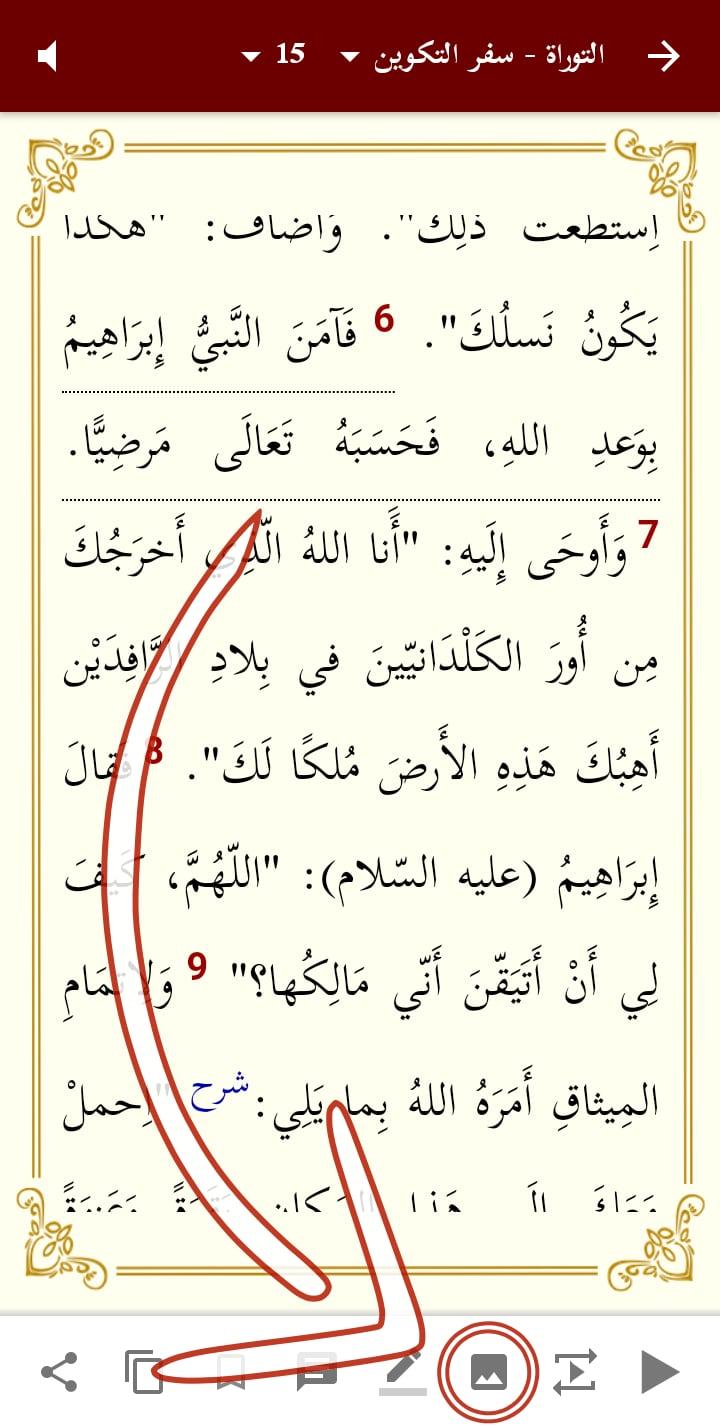 التوراة - سفر التكوين 15
اِستطعت ذٰلِكَ". وَأضافَ: "هكذا
يَكُونُ نَسلُكَ". 6 فَآمَنَ النَّبيُّ إِبرَاهِيمُ
بِوَعدِ اللهِ، فَحَسَبَهُ تَعَالَى مَرضِيًّا.
7 وَأَوحَى إِلَيهِ: "أَنا اللهُ الّذِي أَخرَجُكَ
مِن أُورَ الكَلْدَانيّينَ في بِلادِ الرَّافِدَيْن
أَهِبُكَ هَذِهِ الأَرضَ مُلكًا لَكَ". 8 فَقالَ
إِبرَاهِيمُ (عليه السّلام): "اللّهُمَّ، كَيفَ
لِي أَنْ أَتَيَقّنَ أَنّي مَالِكُها؟" 9 وَلِإتمَامِ
المِيثاقِ أَمَرَهُ اللهُ بِما يَلِي: شرح "اِحملْ
مَعَكَ إلَى هَذا المَكان بَقَرَةً وَعَنزَةً